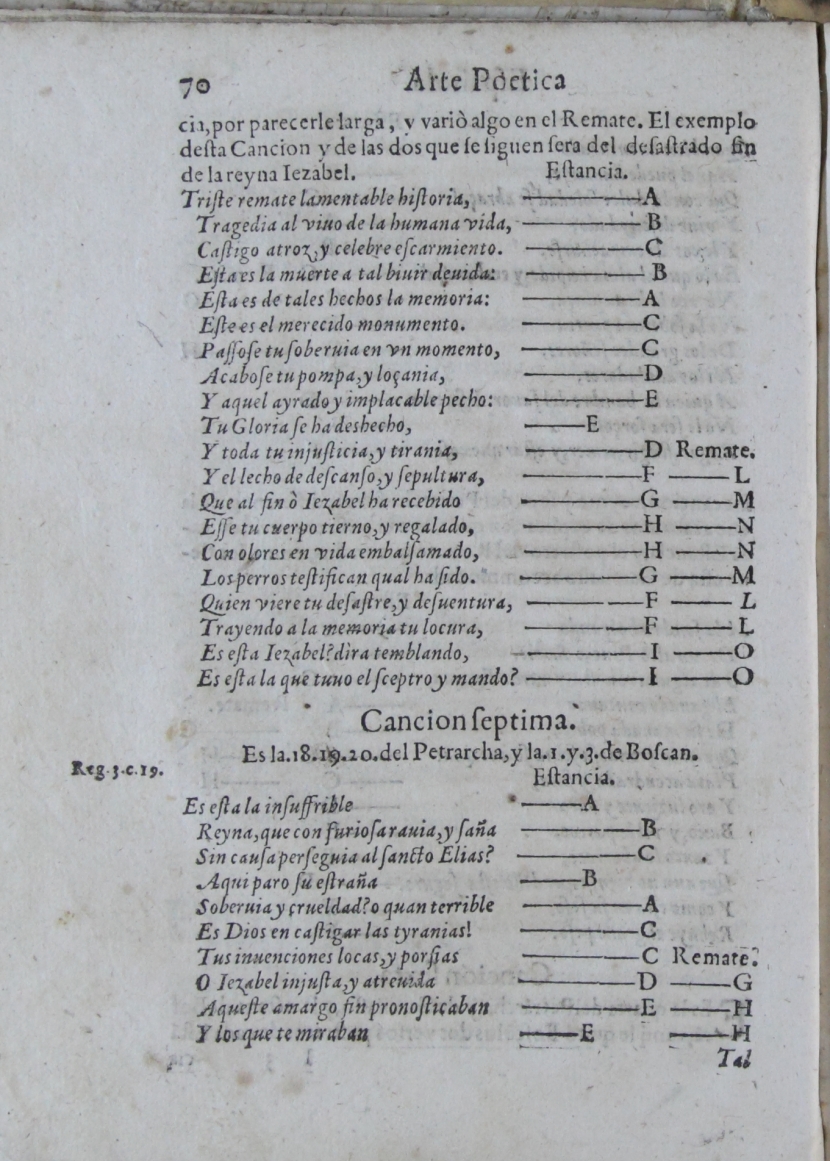 70 Arte Poetica
cia, por parecerle larga, y variò algo en el Remate. El exemplo
desta Cancion y de las dos que se siguen sera del desastrado fin
de la reyna Iezabel. Estancia.
Triste remate lamentable historia, ———A
Tragedia al viuo de la humana vida, ———B
Castigo atroz, y celebre escarmiento. ———C
Esta es la muerte a tal biuir deuida: ———B
Esta es de tales hechos la memoria: ———A
Este es el merecido monumento. ———C
Passose tu soberuia en vn momento, ———C
Acabose tu pompa, y loçania, ———D
Y aquel ayrado y implacable pecho: ———E
Tu Gloria se ha deshecho, ——E
Y toda tu injusticia, y tirania, ———D Remate.
Y el lecho de descanso, y sepultura, ———F ——L
Que al fin ò Iezabel ha recebido ———G ——M
Esse tu cuerpo tierno, y regalado, ———H ——N
Con olores en vida embalsamado, ———H ——N
Los perros testifican qual ha sido. ———G ——M
Quien viere tu desastre, y desuentura, ———F ——L
Trayendo a la memoria tu locura, ———F ——L
Es esta Iezabel? dira temblando, ———I ——O
Es esta la que tuuo el sceptro y mando? ———I ——O
Cancion septima.
Es la.18.19.20.del Petrarcha, y la.1.y.3.de Boscan.
Reg.3.c.19. Estancia.
Es esta la insuffrible ——A
Reyna, que con furiosa rauia, y saña ———B
Sin causa perseguia al sancto Elias? ———C
Aqui paro su estraña ——B
Soberuia y crueldad? o quan terrible ———A
Es Dios en castigar las tyranias! ———C
Tus inuenciones locas, y porfias ———C Remate.
O Iezabel injusta, y atreuida ———D ——G
Aqueste amargo fin pronosticaban ———E ——H
Y los que te miraban ——E ——H
Tal